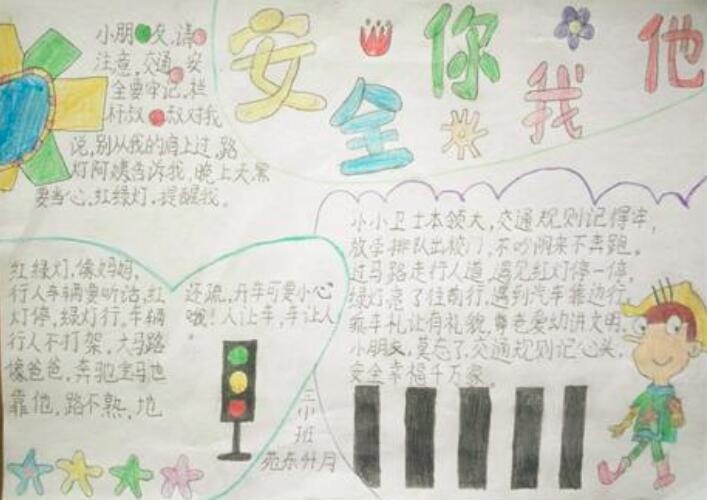 安全你我他
小朋友，请
注意，交通，安
全要牢记，栏
杆叔叔对我
说，别从我的肩上过，路
灯阿姨告诉我，晚上天黑
要当心，红绿灯，提醒我。
小小卫士本领大，交通规则记得牢，
放学排队出校门，不吵闹来不奔跑。
过马路走行人道，遇见红灯停一停，
绿灯亮了往前行，遇到汽车靠边行，
乘车礼让有礼貌，尊老爱幼讲文明，
小朋友，莫忘了，交通规则记心头，
安全幸福千万家。
红绿灯，像妈妈，
行人车辆要听话，红
灯停，绿灯行，车辆
行人不打架，大马路
像爸爸，奔驰宝马也
靠他，路不熟，地
还疏，开车可要小心
哦！人让车，车让人
。
三小班